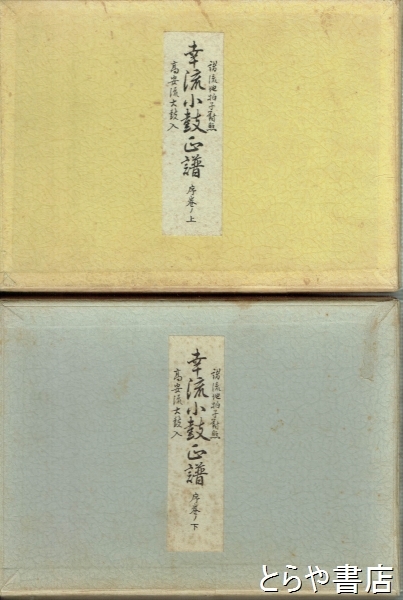 諸流地拍子対照
幸流小鼓正譜 序巻ノ上
高安流大鼓入
諸流地拍子対照
幸流小鼓正譜 序巻ノ下
高安流大鼓入
とらや書店